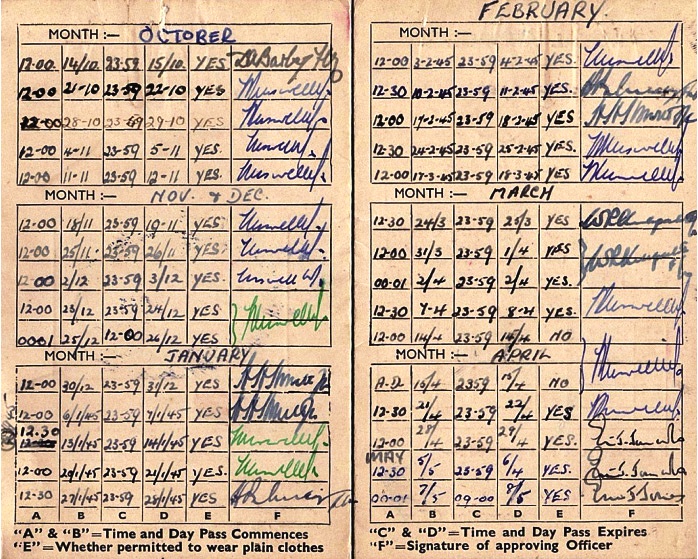 MONTH :— OCTOBER
12-00 14/10 23-59 15/10 YES
12-00 21-10 23-59 22-10 YES
12-00 28-10 23-59 29-10 YES
12-00 4-11 23-59 5-11 YES.
12-00 11-11 23-59 12-11 YES
MONTH :— NOV. & DEC.
12-00 18/11 23-59 19-11 YES
12-00 25/11 23-59 26/11 YES
12-00 2/12 23-59 3/12 YES.
12-00 23/12 23-59 24/12 YES
0001 25/12 12-00 26/12 YES
MONTH :— JANUARY
12-00 30/12 23-59 31/12 YES
12-00 6/1/45 23-59 7/1/45 YES
12.30 13/1/45 23-59 14/1/45 YES
12-00 20/1/45 23-59 21/1/45 YES.
12-30 27/1/45 23-59 28/1/45 YES
A B C D E F
"A" & "B"=Time and Day Pass Commences
"E"=Whether permitted to wear plain clothes
FEBRUARY.
MONTH :—
12-00 3-2-45 23-59 4-2-45 YES.
12-30 10-2-45 23-59 11-2-45 YES.
12-00 17-2-45 23-59 18-2-45 YES.
12-30 24-2-45 23-59 25-2-45 YES.
12-00 17-3-45 23-59 18-3-45 YES.
MONTH :— MARCH
12-30 24/3 23-59 25/3 YES
12-00 31/3 23-59 1/4 YES
00-01 2/4 23-59 2/4 YES.
12-30 7-4 23-59 8-4 YES.
12-00 14/4 23-59 15/4 NO
MONTH :— APRIL
15/4 2359 15/4 NO
12-30 21/4 23-59 22/4 YES
12-00 28/4 23-59 29/4 YES.
MAY
12-30 5/5 23-59 6/4 YES.
00-01 7/5 09-00 8/5 YES.
A B C D E F
"C" & "D"=Time and Day Pass Expires
"F"=Signature of approving Officer